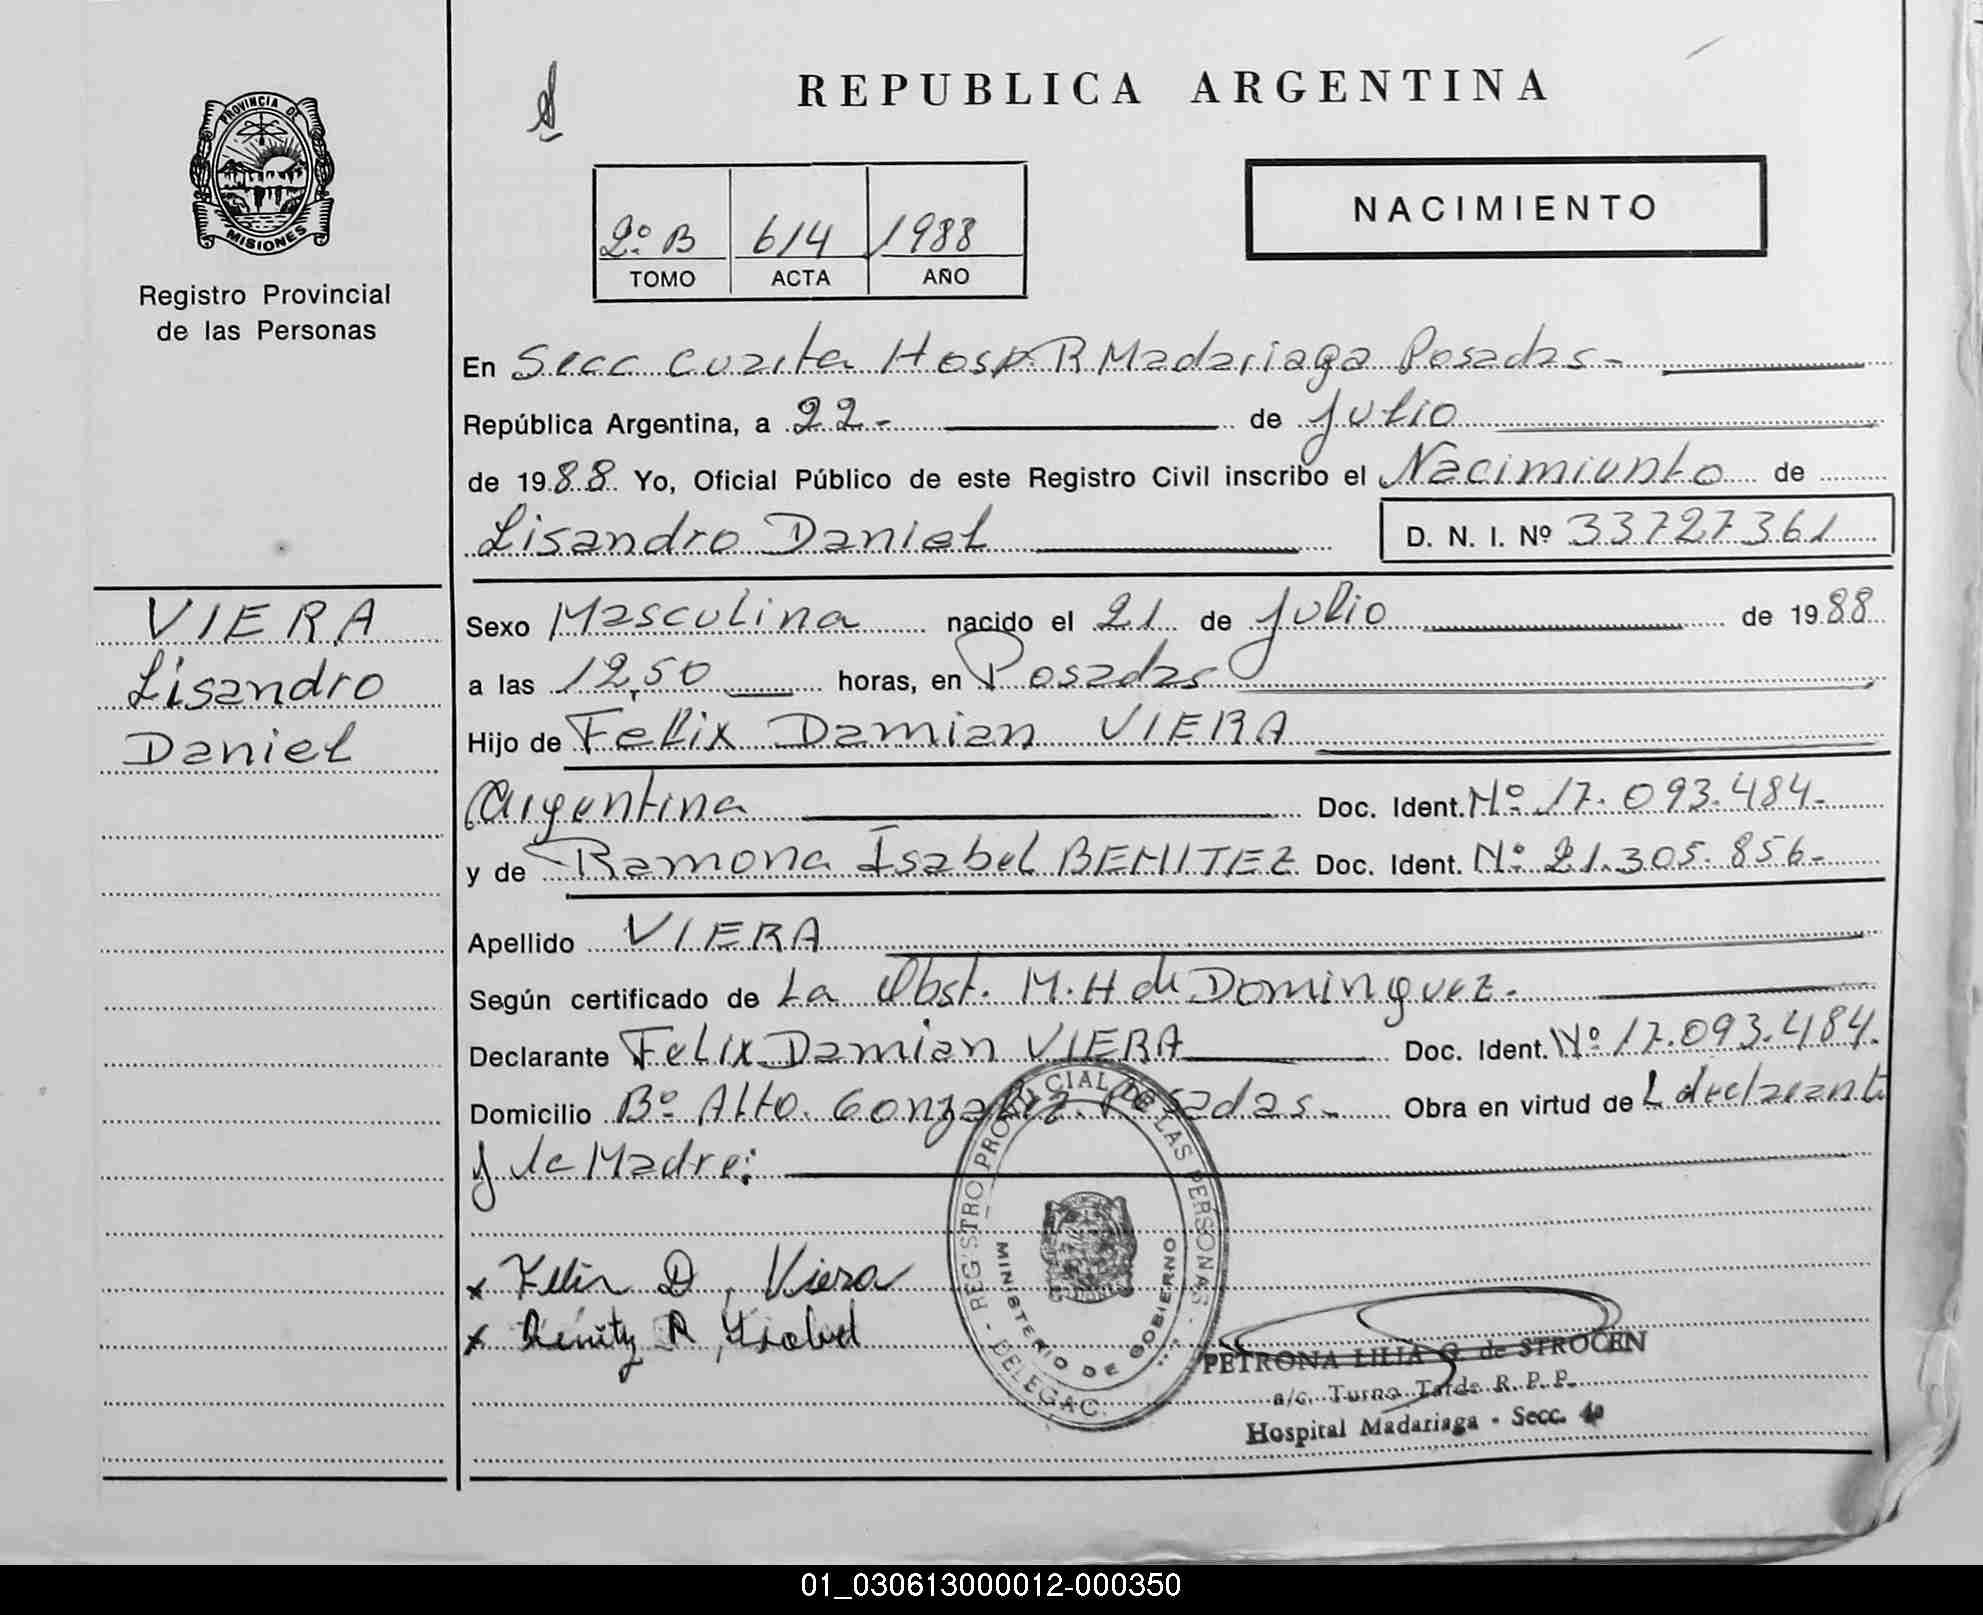 REPUBLICA ARGENTINA
PROVINCIA DE
MISIONES
Registro Provincial
de las Personas
2º B 614 1988
TOMO ACTA AÑO
NACIMIENTO
En Secc Cuarta Hosp. R Madariaga Posadas-
República Argentina, a 22- de Julio
de 1988 Yo, Oficial Público de este Registro Civil inscribo el Nacimiento de
Lisandro Daniel D. N. I. Nº 33727361
VIERA
Lisandro
Daniel
Sexo Masculina nacido el 21 de Julio de 1988
a las 12,50 horas, en Posadas
Hijo de Felix Damian VIERA
Argentina Doc. Ident. Nº 17.093.484-
y de Ramona Isabel BENITEZ Doc. Ident. Nº 21.305.856-
Apellido VIERA
Según certificado de La Obst. M.H de Dominguez-
Declarante Felix Damian VIERA Doc. Ident. Nº 17.093.484.
Domicilio Bº Alto Gonzalez Posadas- Obra en virtud de L declarante
y la Madre:
x Felix D, Viera
x Benitez R, Isabel
REGISTRO PROVINCIAL DE LAS PERSONAS - DELEGAC.
MINISTERIO DE GOBIERNO
PETRONA LILIA G. de STROCEN
a/c. Turno Tarde R. P. P.
Hospital Madariaga - Secc. 4a
01_030613000012-000350